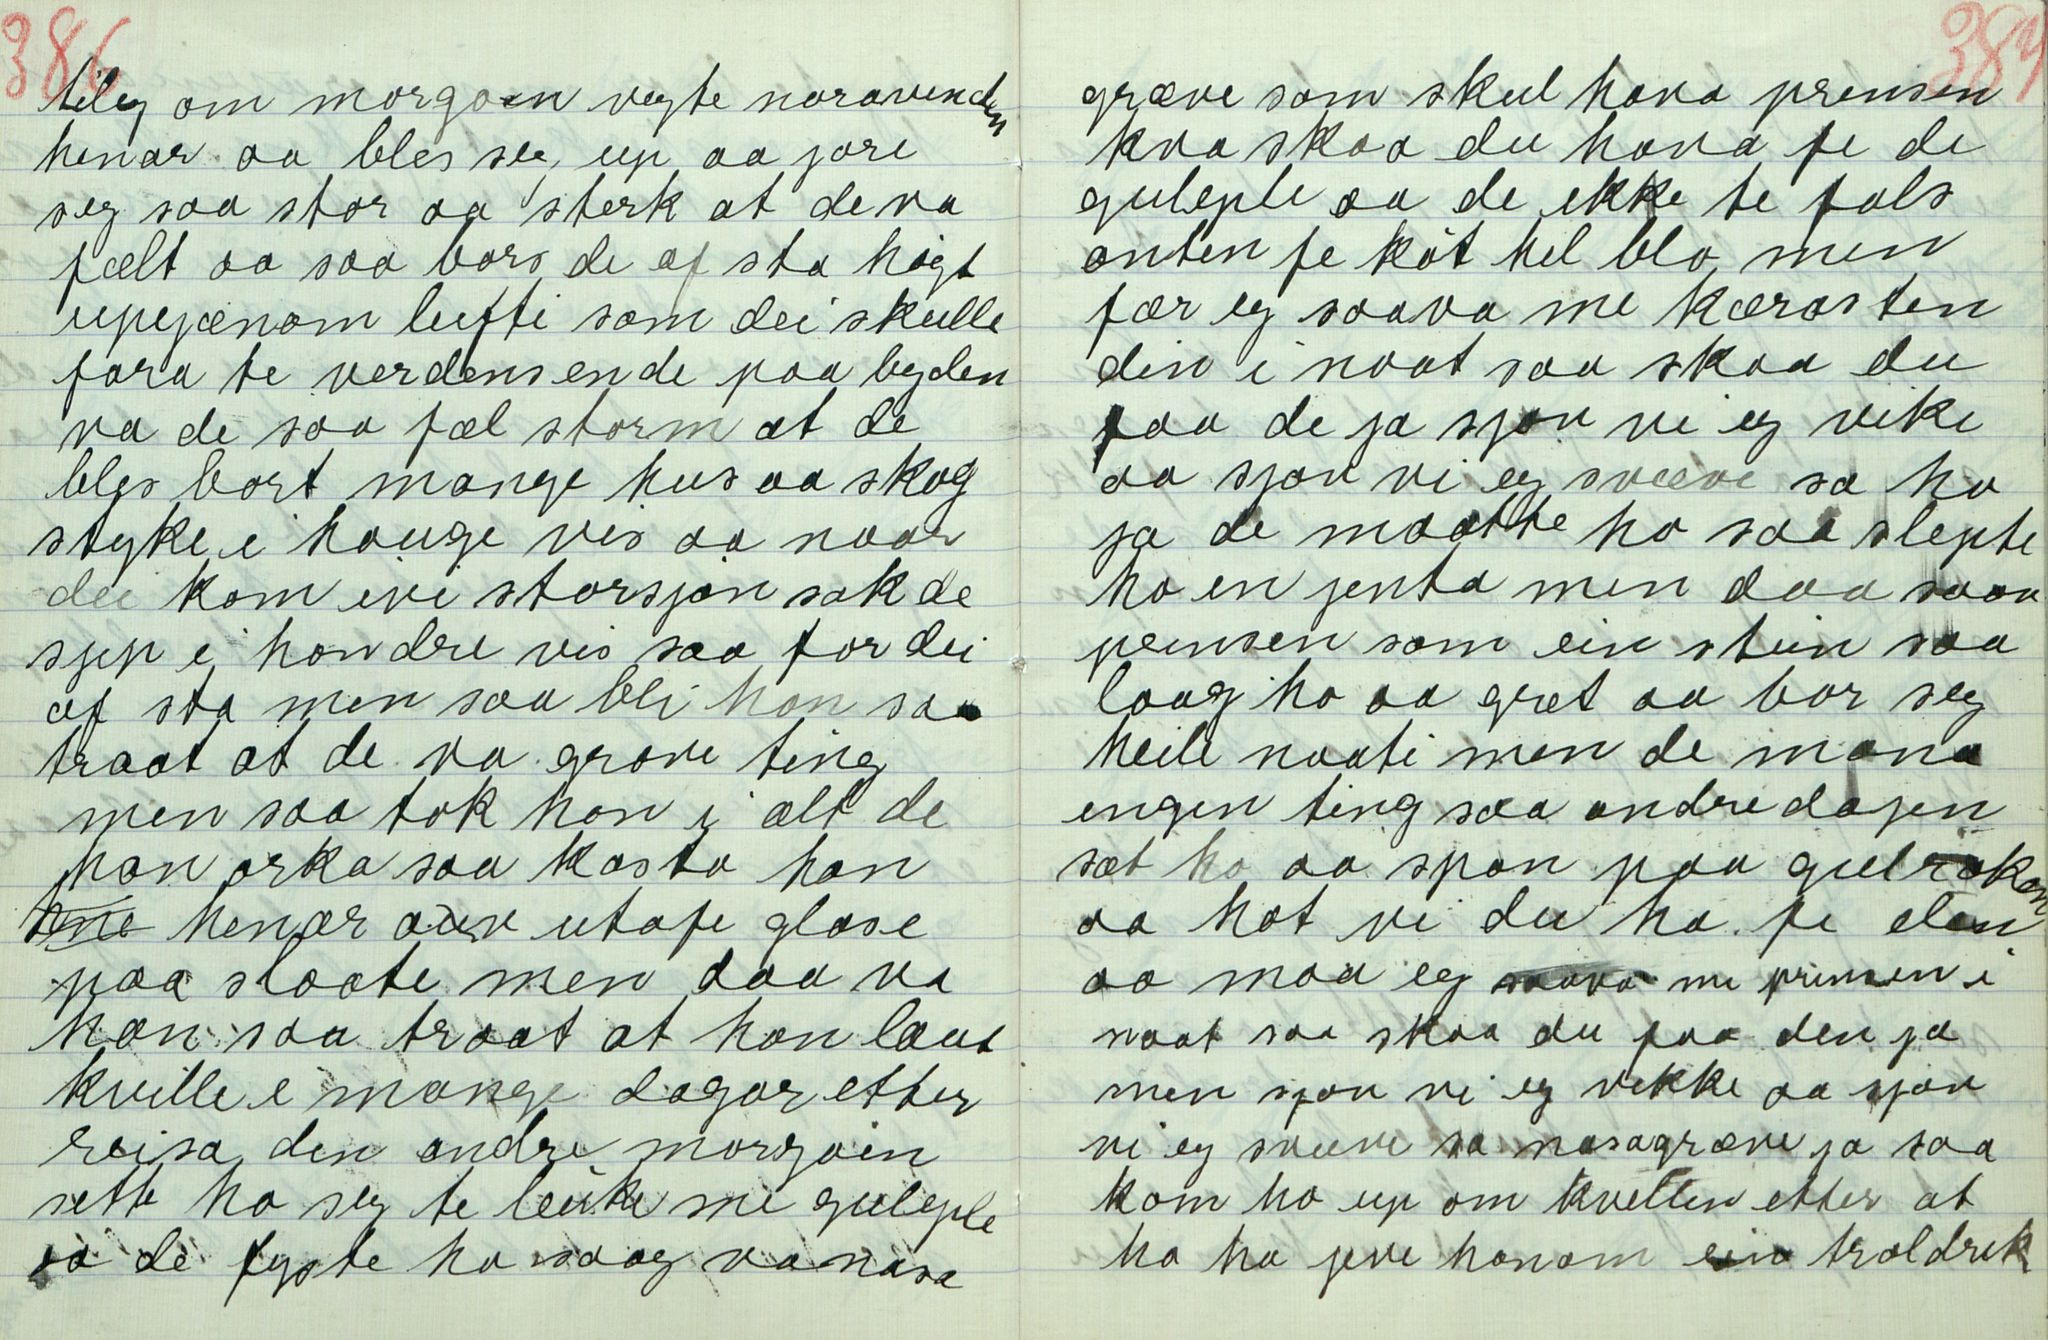 386
tileg om morgoen vegte noravenden
henar aa bles seg up aa jore
seg saa stor aa sterk at de va
fælt aa saa bars de af sta högt
upejænom lufti som dei skulle
fara te verdens ende paa bygden
va de saa fæl storm at de
bles bort mange hus aa skog
styke i hauge vis aa naar
dei kom ivi storsjøn sok de
sjip i hondre vis saa for dei
af sta men saa bli han saa
traat at de va grove ting
men saa tok han i alt de
han orka saa kasta han
henar utafe glase
paa slaate men daa va
han saa traat at han laut
kville i mange dagar etter
reisa den andre morgoin
sette ho seg te leike me guleple
aa de fyste ho saag va nasa
387
græve som skul hava prensen
kva skaa du hava fe de
guleple aa de ikke te fals
anten fe köt hel blo men
fær eg saava me kærasten
din i naat saa skaa du
faa de ja sjøn vi eg vike
aa sjøn vi eg sveve sa ho
ja de maatte ho saa slepte
ho en jenta men daa saav
prinsen som ein stein saa
laag ho aa græt aa bar seg
heile naati men de mona
engen ting saa andre dagen
sæt ho aa span paa gulrokan
aa hot vi du ha fe den
aa maa eg saava me prinsen i
naat saa skaa du faa den ja
men sjøn vi eg vekke aa sjøn
vi eg sveve sa nasagræve ja saa
kom ho up om kvellen etter at
ho ha jeve honom ein troldrik